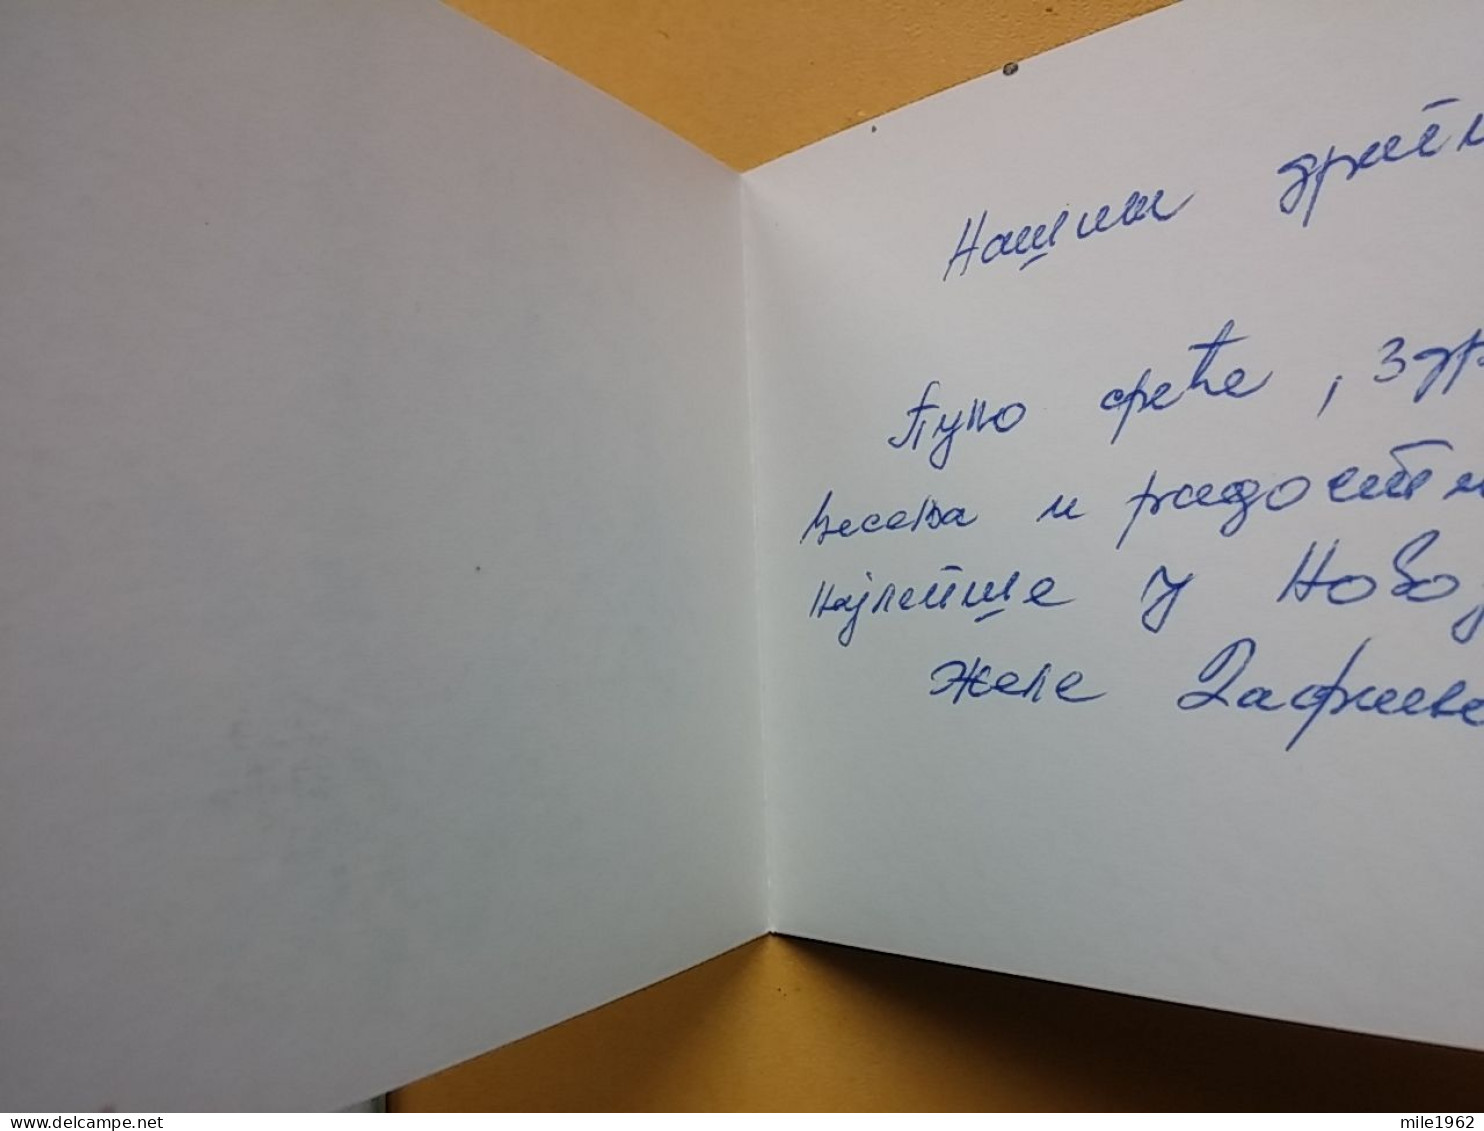 Нашим
Пуно среће, здр
весеља и радости
најлепше у Новој
желе
delcampe.net
mile1962